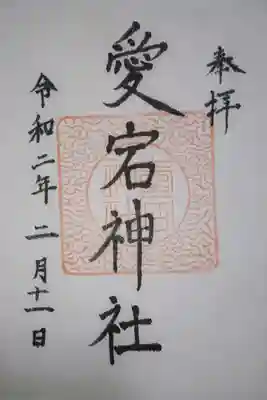 奉拝
愛宕神社
令和二年 二月十一日